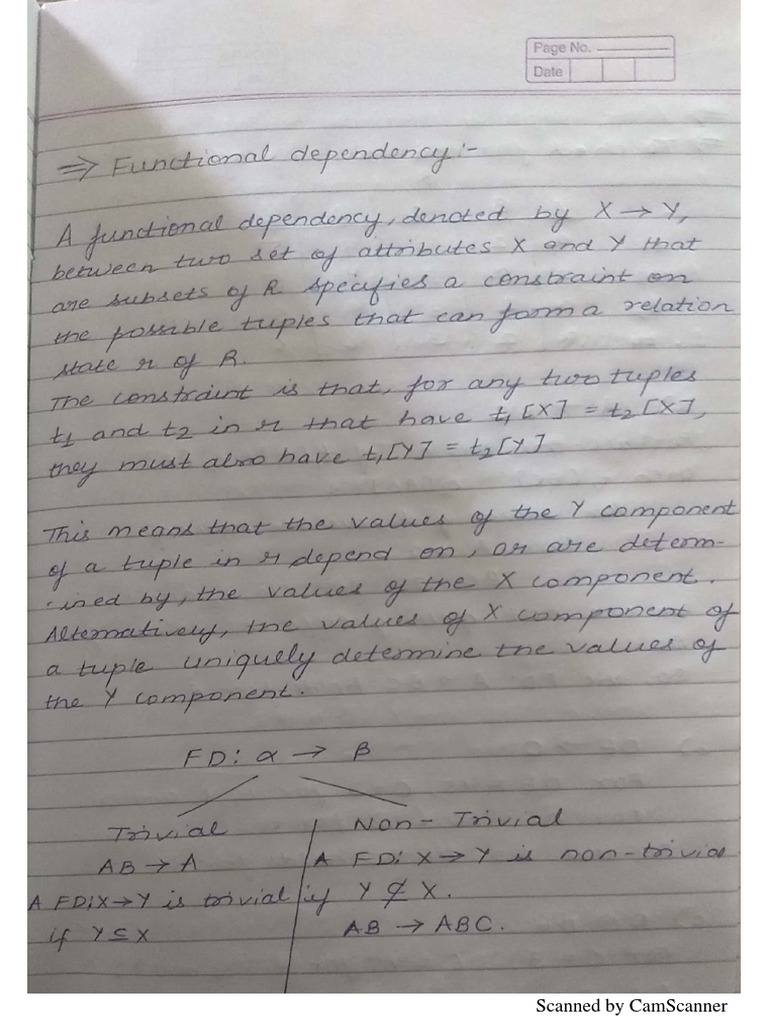 Page No.
Date
⇒ Functional dependency :-
A functional dependency, denoted by X → Y,
between two set of attributes X and Y that
are subsets of R specifies a constraint on
the possible tuples that can form a relation
state r of R.
The constraint is that, for any two tuples
t1 and t2 in r that have t1[X] = t2[X],
they must also have t1[Y] = t2[Y]
This means that the values of the Y component
of a tuple in r depend on, or are determ-
-ined by, the values of the X component.
Alternatively, the values of X component of
a tuple uniquely determine the values of
the Y component.
FD: α → β
Trivial
AB → A
A FD: X → Y is trivial
if Y ⊆ X
Non- Trivial
A FD: X → Y is non-trivial
if Y ⊄ X.
AB → ABC.
Scanned by CamScanner